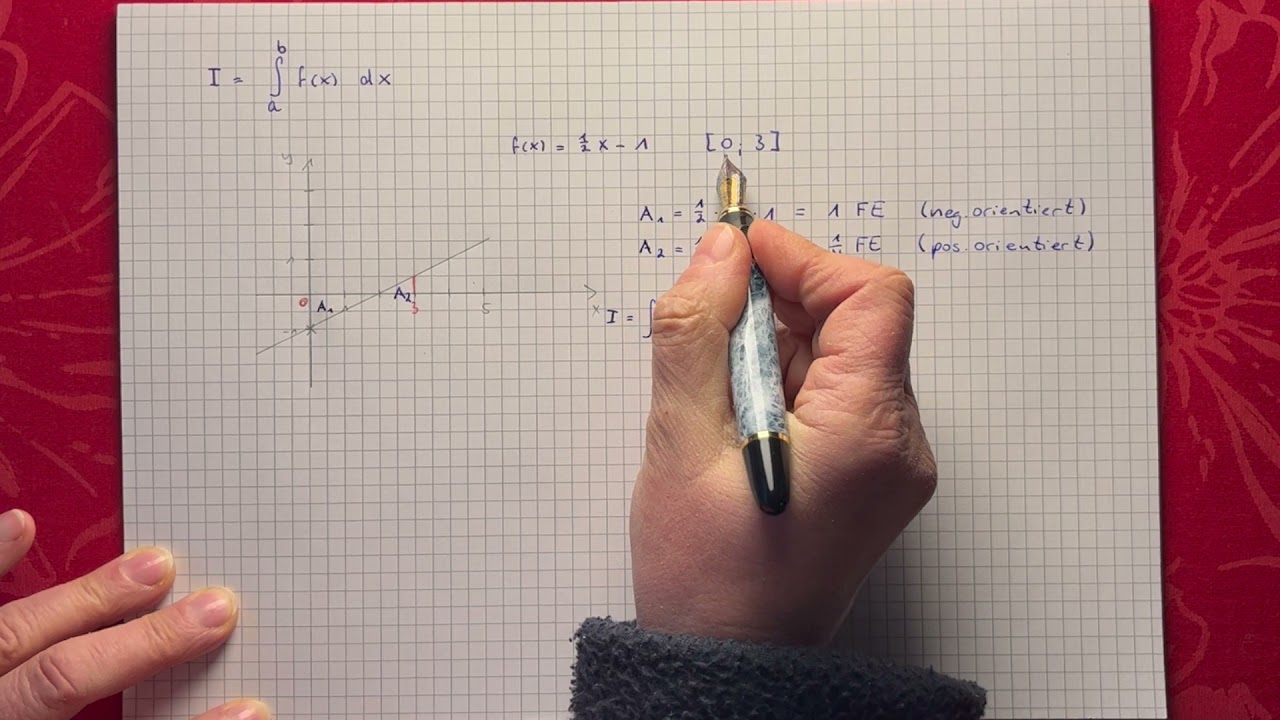 b
I = ∫ f(x) dx
a
f(x) = 1/2 x - 1 [0; 3]
A₁ = 1/2 · · 1 = 1 FE (neg. orientiert)
A₂ = FE (pos. orientiert)
y
1
0 A₁ A₂ 3 5 x
-1
I = ∫